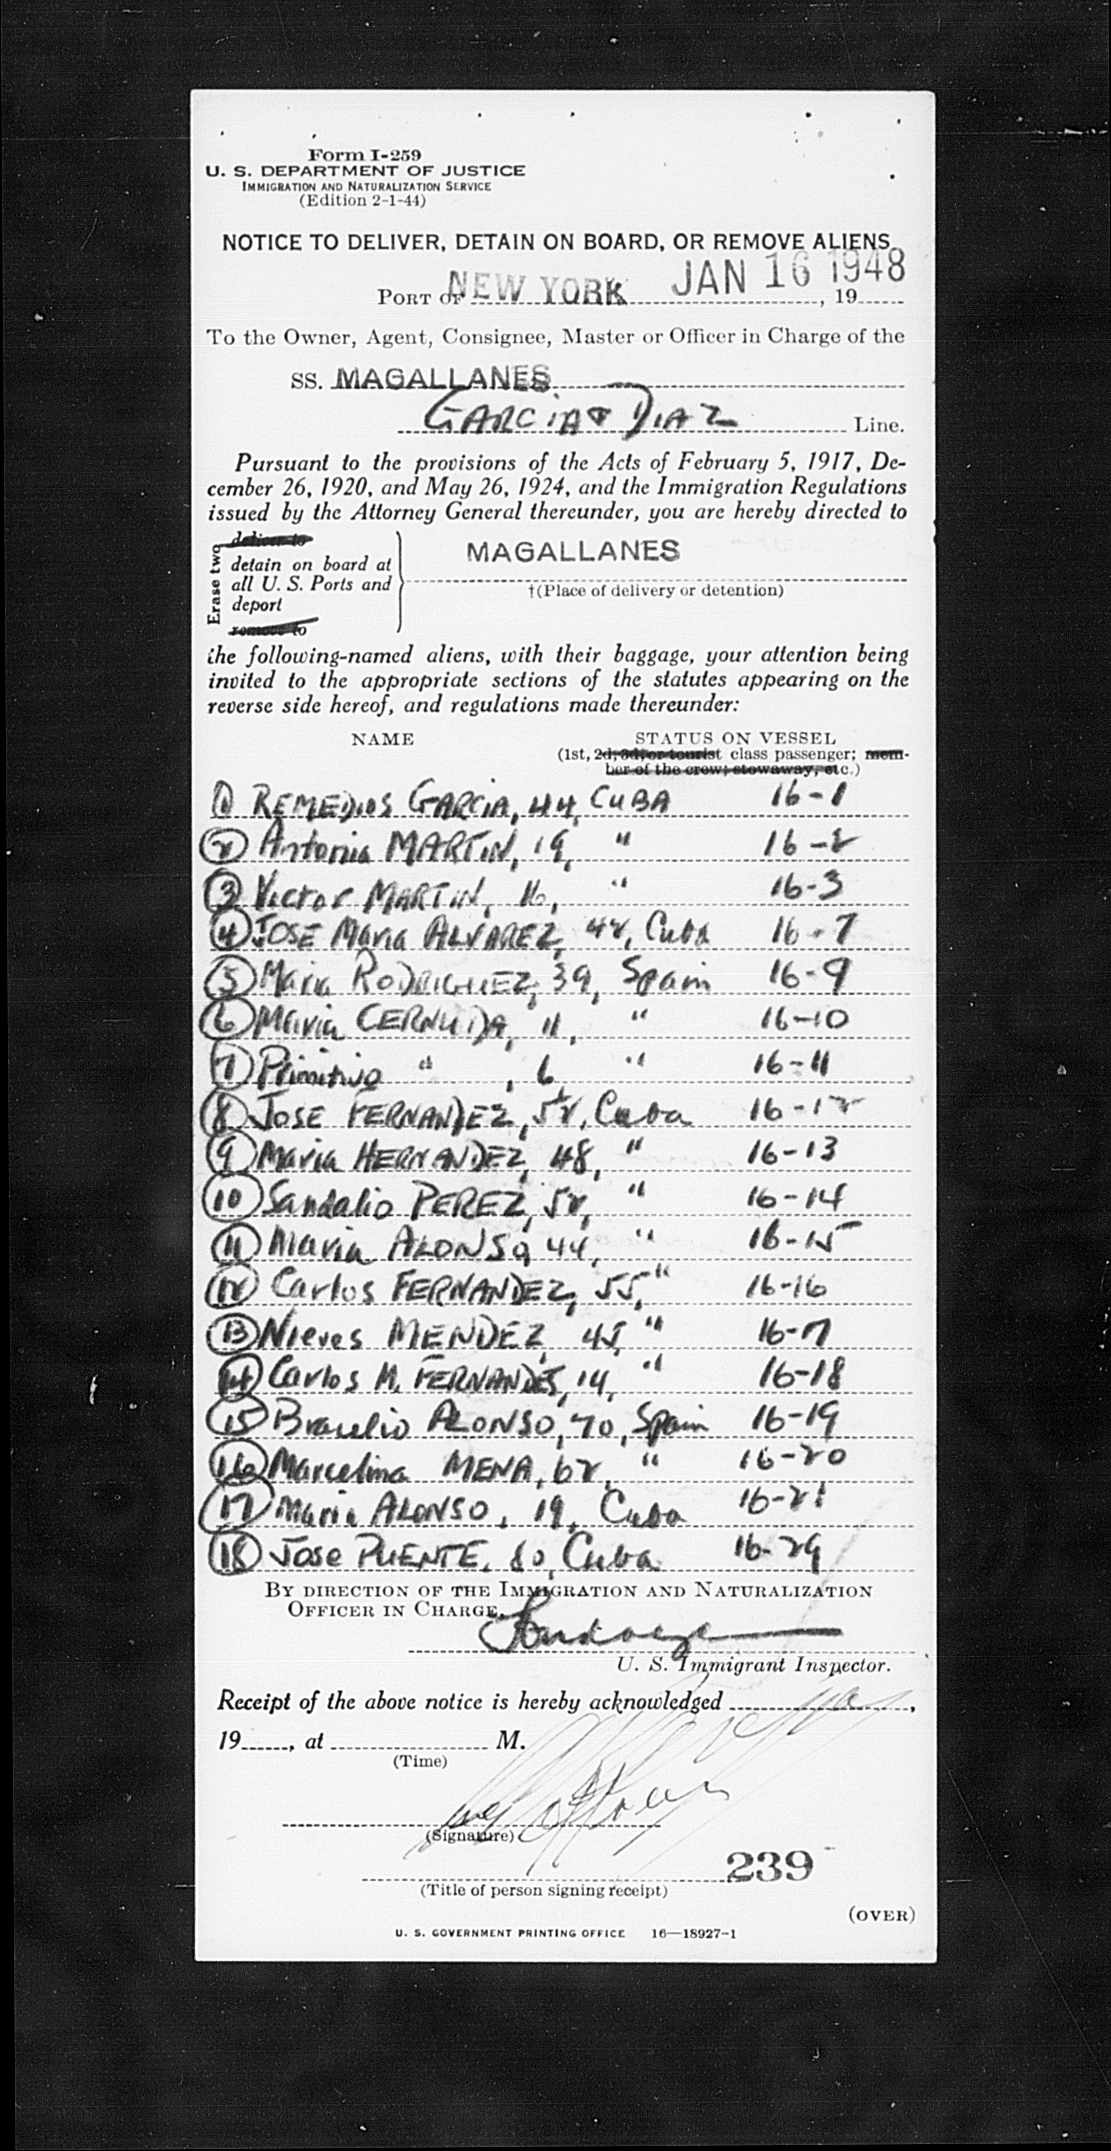 Form I-259
U. S. DEPARTMENT OF JUSTICE
IMMIGRATION AND NATURALIZATION SERVICE
(Edition 2-1-44)
NOTICE TO DELIVER, DETAIN ON BOARD, OR REMOVE ALIENS
PORT OF NEW YORK JAN 16 1948, 19
To the Owner, Agent, Consignee, Master or Officer in Charge of the
SS. MAGALLANES
GARCIA & DIAZ Line.
Pursuant to the provisions of the Acts of February 5, 1917, De-
cember 26, 1920, and May 26, 1924, and the Immigration Regulations
issued by the Attorney General thereunder, you are hereby directed to
Erase two
deliver to
detain on board at
all U. S. Ports and
deport
remove to
MAGALLANES
†(Place of delivery or detention)
the following-named aliens, with their baggage, your attention being
invited to the appropriate sections of the statutes appearing on the
reverse side hereof, and regulations made thereunder:
NAME STATUS ON VESSEL
(1st, 2d, 3d, or tourist class passenger; mem-
ber of the crew; stowaway, etc.)
1 REMEDIOS GARCIA, 44, CUBA 16-1
2 Antonia MARTIN, 19, " 16-2
3 Victor MARTIN, 16, " 16-3
4 JOSE Maria ALVAREZ, 42, Cuba 16-7
5 Maria RODRIGUEZ, 39, Spain 16-9
6 Maria CERNUDA, 11, " 16-10
7 Primitivo " , 6 " 16-11
8 JOSE FERNANDEZ, 52, Cuba 16-12
9 Maria HERNANDEZ, 48, " 16-13
10 Sandalio PEREZ, 52, " 16-14
11 Maria ALONSO, 44, " 16-15
12 Carlos FERNANDEZ, 55, " 16-16
13 Nieves MENDEZ, 45, " 16-17
14 Carlos M. FERNANDES, 14, " 16-18
15 Braulio ALONSO, 70, Spain 16-19
16 Marcelina MENA, 62, " 16-20
17 Maria ALONSO, 19, Cuba 16-21
18 Jose PUENTE, 80, Cuba 16-29
BY DIRECTION OF THE IMMIGRATION AND NATURALIZATION
OFFICER IN CHARGE,
U. S. Immigrant Inspector.
Receipt of the above notice is hereby acknowledged ,
19 , at M.
(Time)
(Signature)
239
(Title of person signing receipt)
(OVER)
U. S. GOVERNMENT PRINTING OFFICE 16—18927-1